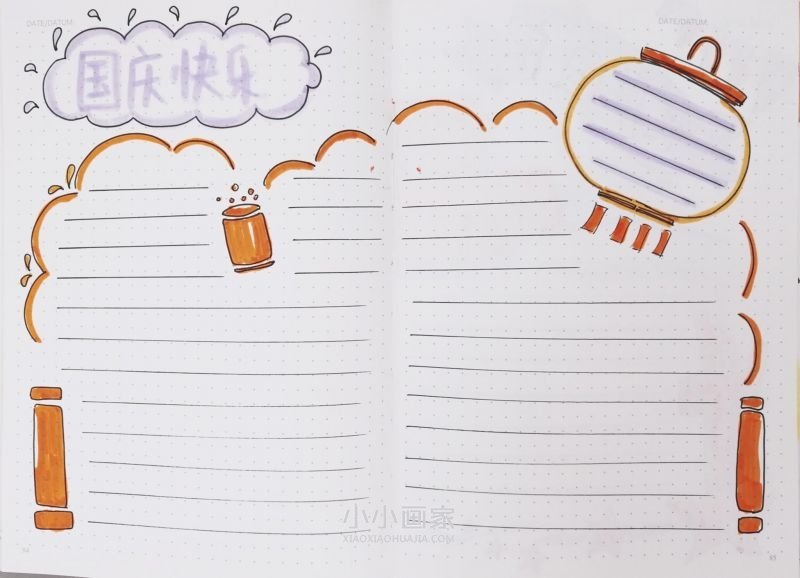 DATE/DATUM
DATE/DATUM
国庆快乐
小小画家
XIAOXIAOHUAJIA.COM
94
95